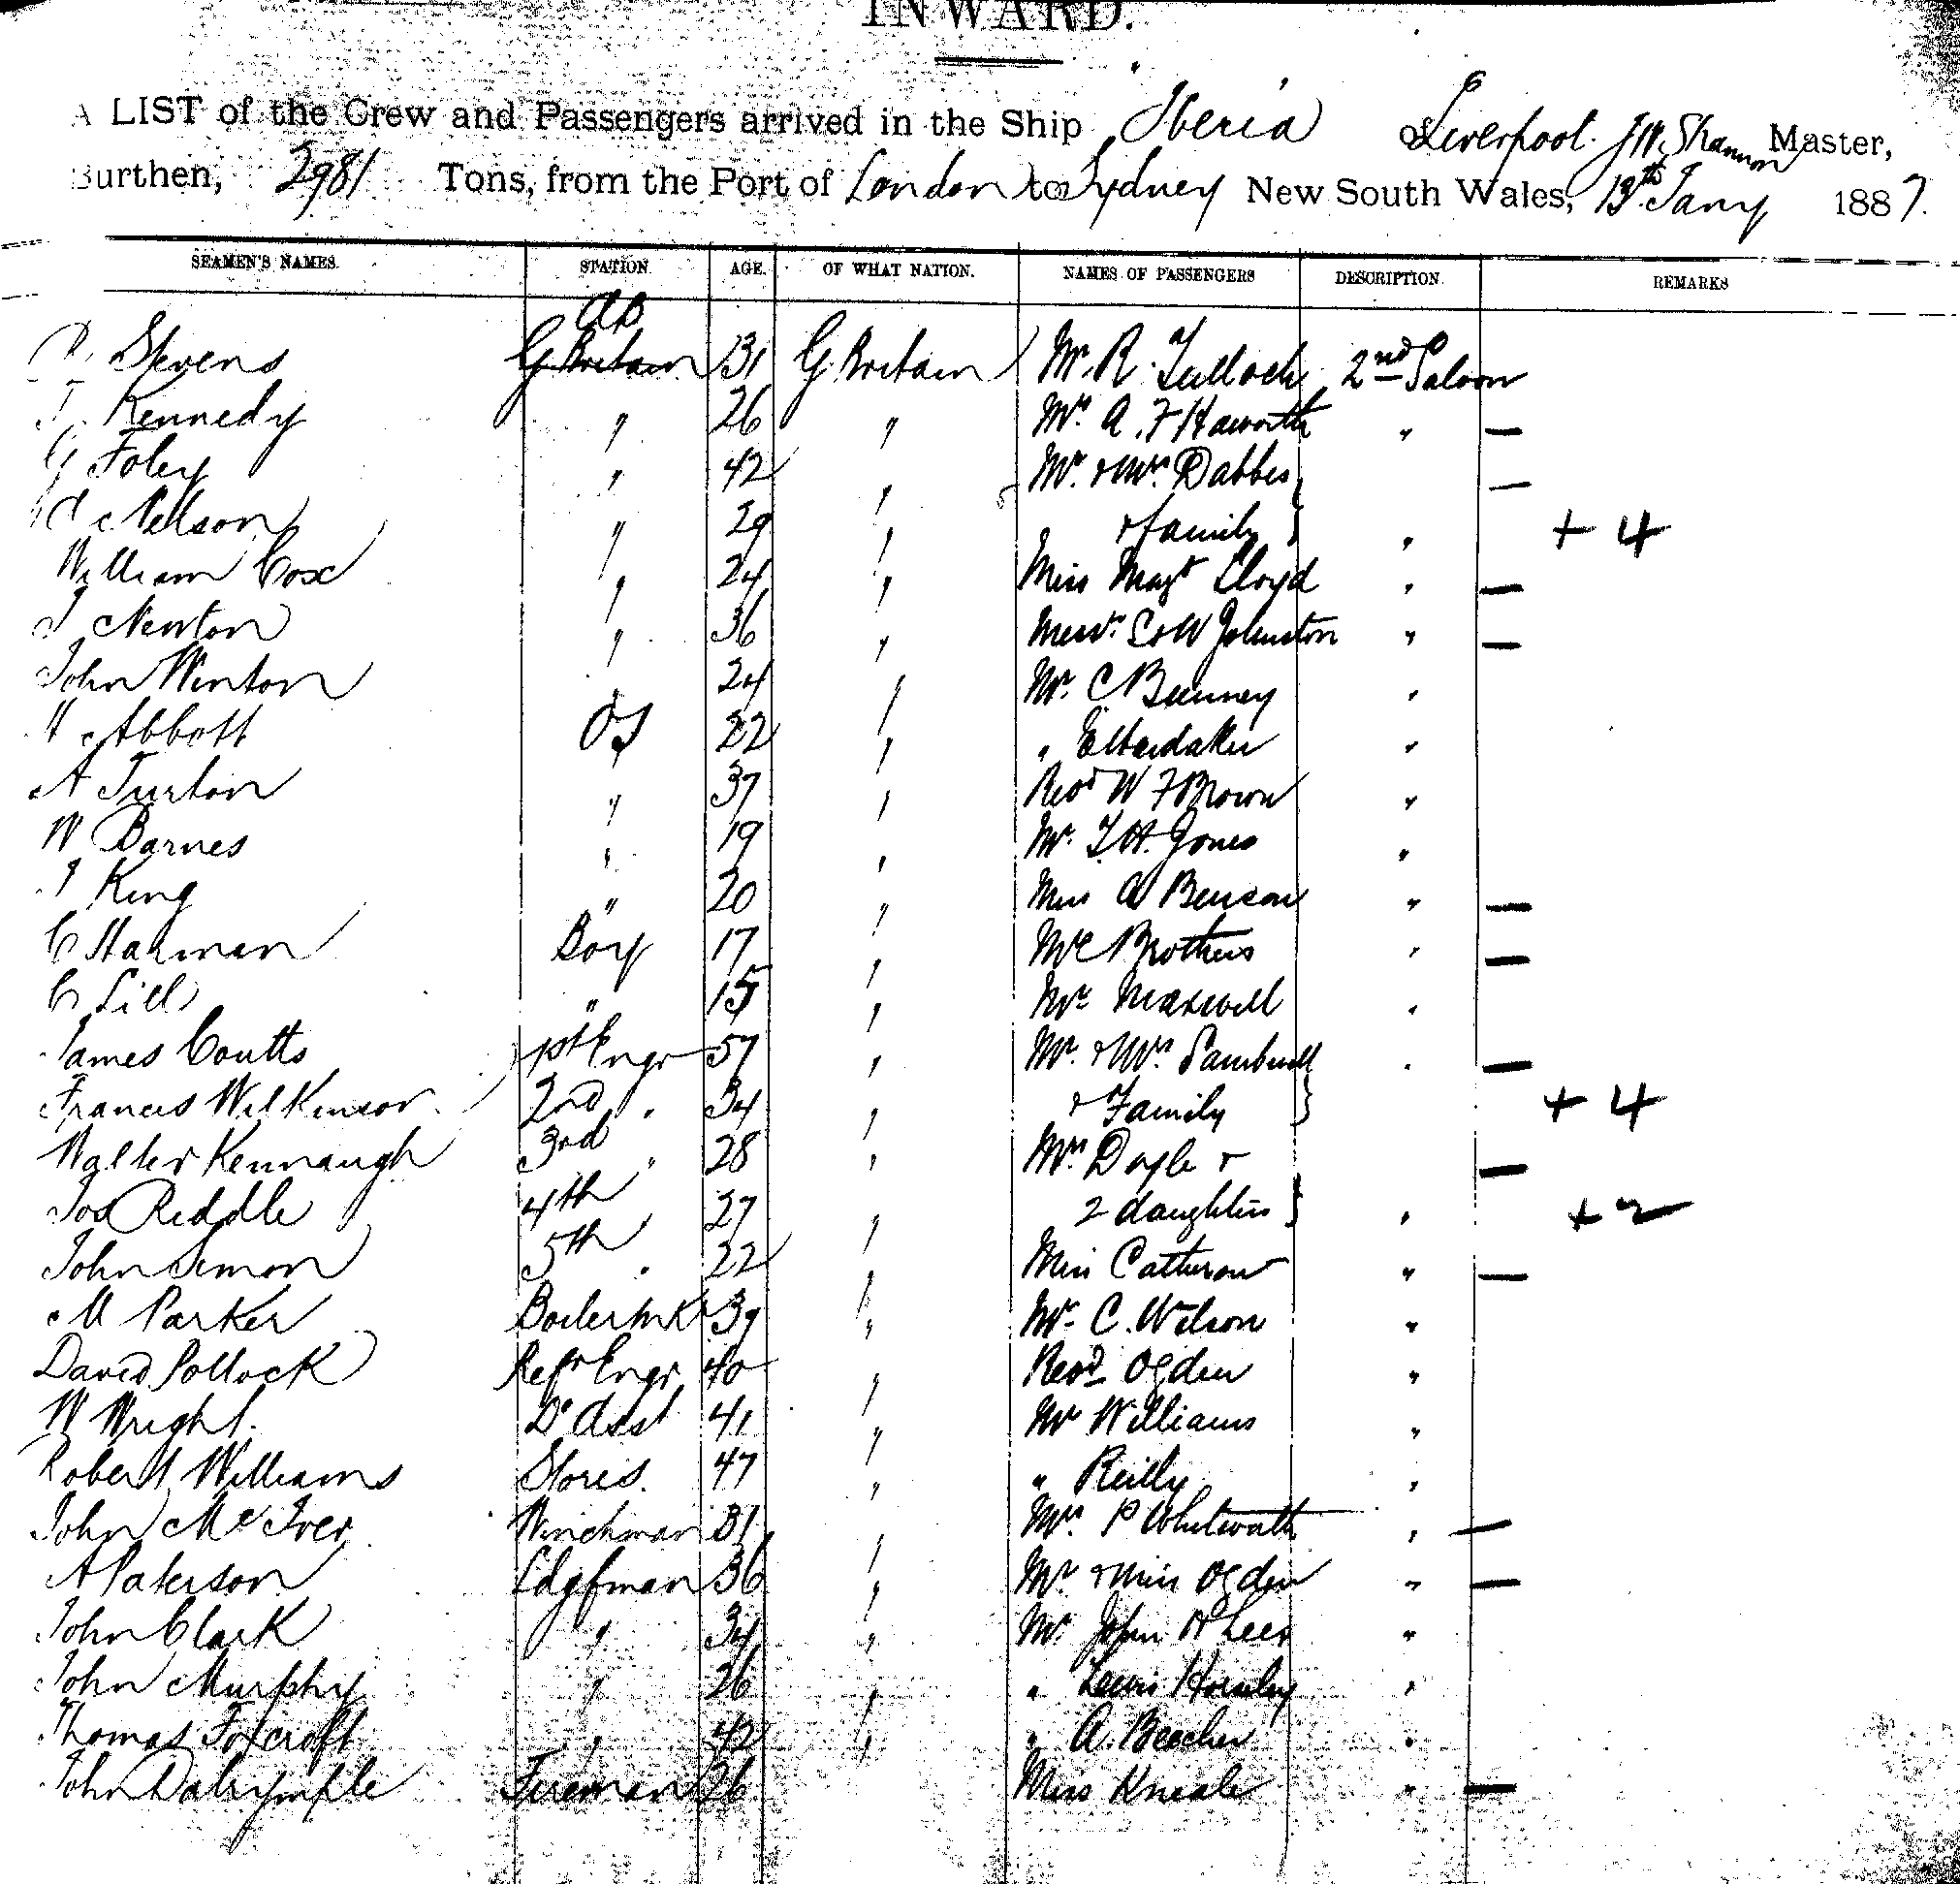 INWARD.
A LIST of the Crew and Passengers arrived in the Ship Iberia of Liverpool. J W. Shannon Master,
Burthen, 2981 Tons, from the Port of London to Sydney New South Wales, 13th Jany 1887.
SEAMEN'S NAMES. STATION. AGE. OF WHAT NATION. NAMES OF PASSENGERS DESCRIPTION. REMARKS
AB
Stevens G. Britain 31 G. Britain Mr. R. Tulloch 2nd Saloon
Kennedy " 26 " Mrs. A. F Haworth " —
G Foley " 42 " Mr. & Mrs. Dabbes —
Nelson " 29 " " & family } " + 4
William Cox " 24 " Miss Magt Lloyd " —
J Newton " 36 " Messrs. C & W Johnston " —
John Winton " 24 " Mr. C Bunney "
H Abbott OS 22 " "
A Turton " 37 " Revd W F Brown "
W Barnes " 19 " Mr. T. H. Jones "
J King " 20 " Miss A Benson " —
C Harman Boy 17 " Mr C Brothers " —
C Lill " 15 " Mr Maxwell "
James Coutts 1st Engr 57 " Mr. & Mrs. " —
Francis Wilkinson 2nd " 34 " & Family } + 4
Walter Kennaugh 3rd " 28 " Mrs Doyle & —
Jos Riddle 4th 27 " 2 daughters } " + 2
John Simon 5th " 22 " Miss " —
M Parker Boilermkr 39 " Mr. C. Wilson "
David Pollock Refr Engr 40 " Revd Ogden "
W Wright. Do Asst 41 " Mr Williams "
Robert Williams Stores. 47 " " Reilly "
John McIver Winchman 31 " Mrs. P Whitworth " —
A Paterson 36 " Mr & Miss Ogden " —
John Clark " 34 " Mr. John H Lees "
John Murphy " 26 " " Lewis "
Thomas Foxcroft " 42 " " A. Beecher "
John Dalrymple Fireman 26 Miss Kneale " —